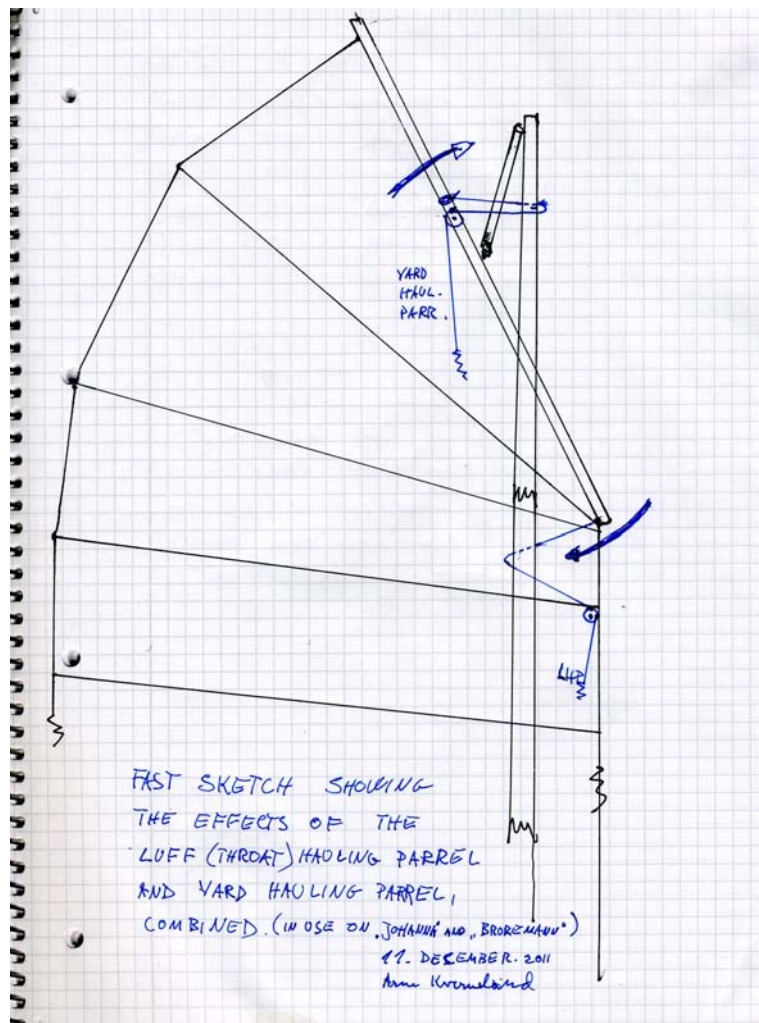 YARD
HAUL.
PARR.
LHP
FAST SKETCH SHOWING
THE EFFECTS OF THE
LUFF (THROAT) HAULING PARREL
AND YARD HAULING PARREL,
COMBINED. (IN USE ON "JOHANNA" AND "BROREMANN")
11. DESEMBER. 2011
Arne Kverneland